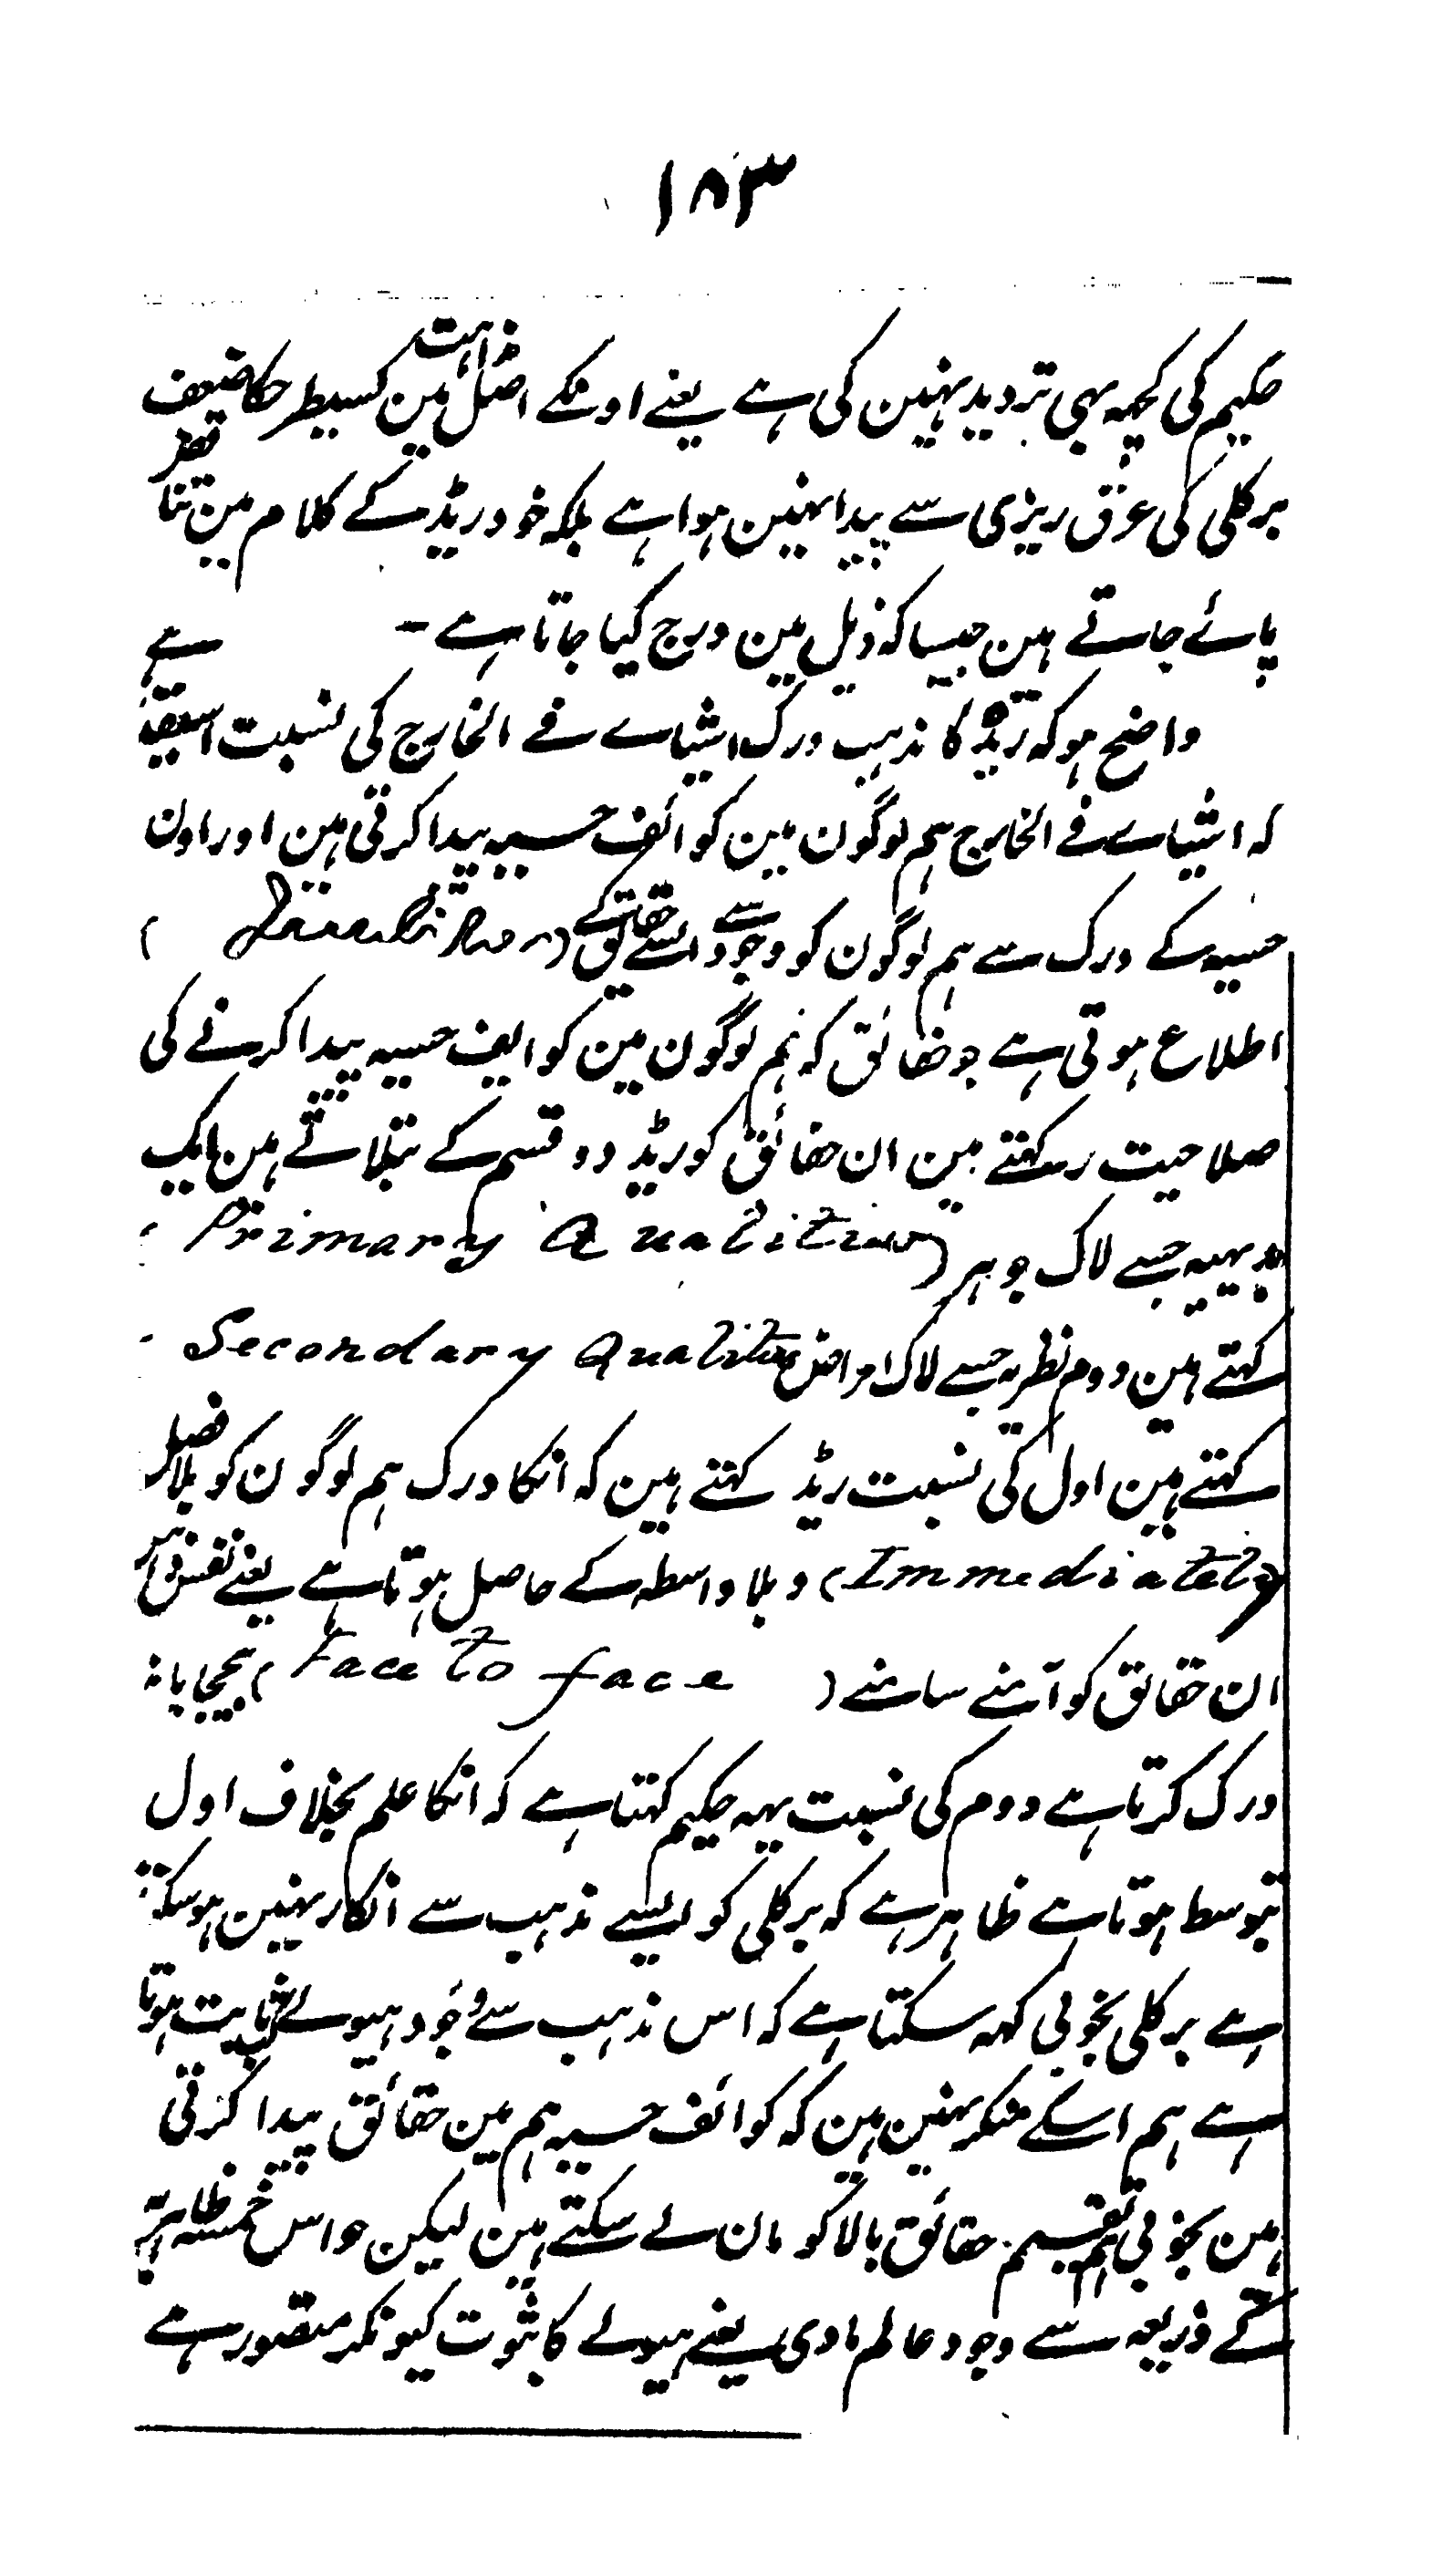 ۱۸۳
حکیم کی کچہہ بہی تردید نہین کی ہے یعنے اونکے اصل مذہب مین کسیطرحکا ضیعف
برکلی کی عرق ریزی سے پیدا نہین ہوا ہے بلکہ خود ریڈ کے کلام مین تناقض
پائے جاتے ہین جیسا کہ ذیل مین درج کیا جاتا ہے -
واضح ہو کہ ریڈ کا مذہب درک اشیاے فے الخارج کی نسبت اسیقدر ہے
کہ اشیاے فے الخارج ہم لوگون مین کوائف حسیہ پیدا کرتی ہین اور اون
حسیہ کے درک سے ہم لوگون کو وجود سے ایسے حقائق کے (Qualities)
اطلاع ہوتی ہے جو حقائق کہ ہم لوگون مین کوایف حسیہ پیدا کرنے کی
صلاحیت رکھتے ہین ان حقائق کو ریڈ دو قسم کے بتلاتے ہین ایک
بدیہیہ جسے لاک جوہر (Primary Qualities)
کہتے ہین دوم نظریہ جسے لاک اعراض Secondary Qualities
کہتے ہین اول کی نسبت ریڈ کہتے ہین کہ انکا درک ہم لوگون کو بلا فصل
(Immediately) و بلا واسطہ کے حاصل ہوتا ہے یعنے نفس ناطقہ
ان حقائق کو آمنے سامنے (Face to face) بیحجابانہ
درک کرتا ہے دوم کی نسبت یہہ حکیم کہتا ہے کہ انکا علم بخلاف اول
بتوسط ہوتا ہے ظاہر ہے کہ برکلی کو ایسے مذہب سے انکار نہین ہوسکتا
ہے برکلی بخوبی کہہ سکتا ہے کہ اس مذہب سے وجود ہیولے کب ثابت ہوتا
ہے ہم اسکے منکر نہین ہین کہ کوائف حسیہ ہم مین حقائق پیدا کرتی
ہین بخوبی ہم تقسیم حقائق بالا کو مان لے سکتے ہین لیکن حواس خمسہ ظاہریہ
کے ذریعہ سے وجود عالم مادی یعنے ہیولے کا ثبوت کیونکر متصور ہے